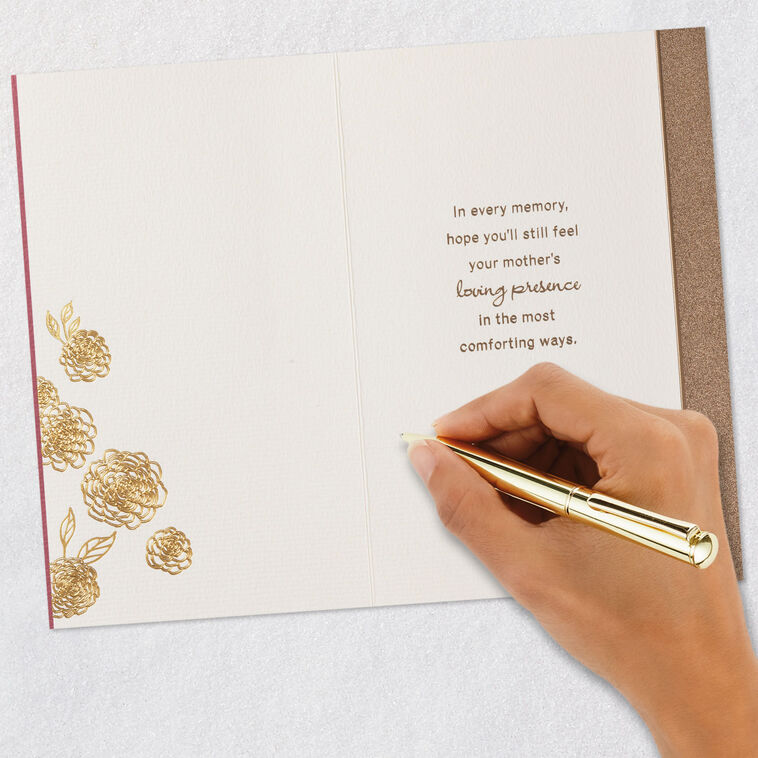 In every memory,
hope you'll still feel
your mother's
loving presence
in the most
comforting ways.